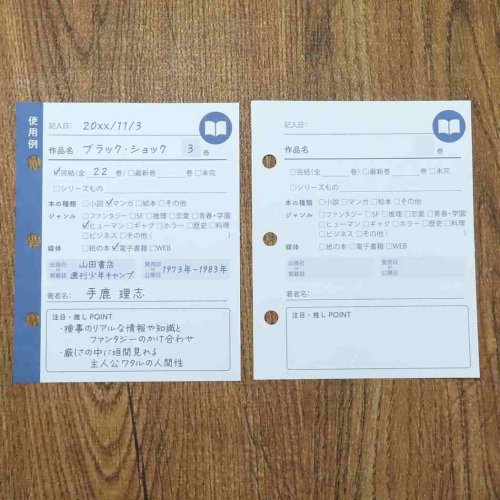 使用例
記入日: 20xx/11/3
作品名 ブラック・ショック 3 巻
完結(全 22 巻) □最新巻 巻 □未完
□シリーズもの
本の種類 □小説 マンガ □絵本 □その他
ジャンル □ファンタジー □SF □推理 □恋愛 □青春・学園
ヒューマン □ギャグ □ホラー □歴史 □料理
□ビジネス □その他( )
媒体 □紙の本 電子書籍 □WEB
出版社 or 掲載誌 山田書店 週刊少年キャンプ 発売日 or 公開日 1973年-1983年
著者名: 手鹿 理志
注目・推しPOINT
・検事のリアルな情報や知識と
ファンタジーのかけ合わせ
・厳しさの中に垣間見れる
主人公ワタルの人間性
記入日:
作品名 巻
□完結(全 巻) □最新巻 巻 □未完
□シリーズもの
本の種類 □小説 □マンガ □絵本 □その他
ジャンル □ファンタジー □SF □推理 □恋愛 □青春・学園
□ヒューマン □ギャグ □ホラー □歴史 □料理
□ビジネス □その他( )
媒体 □紙の本 □電子書籍 □WEB
出版社 or 掲載誌 発売日 or 公開日
著者名:
注目・推しPOINT